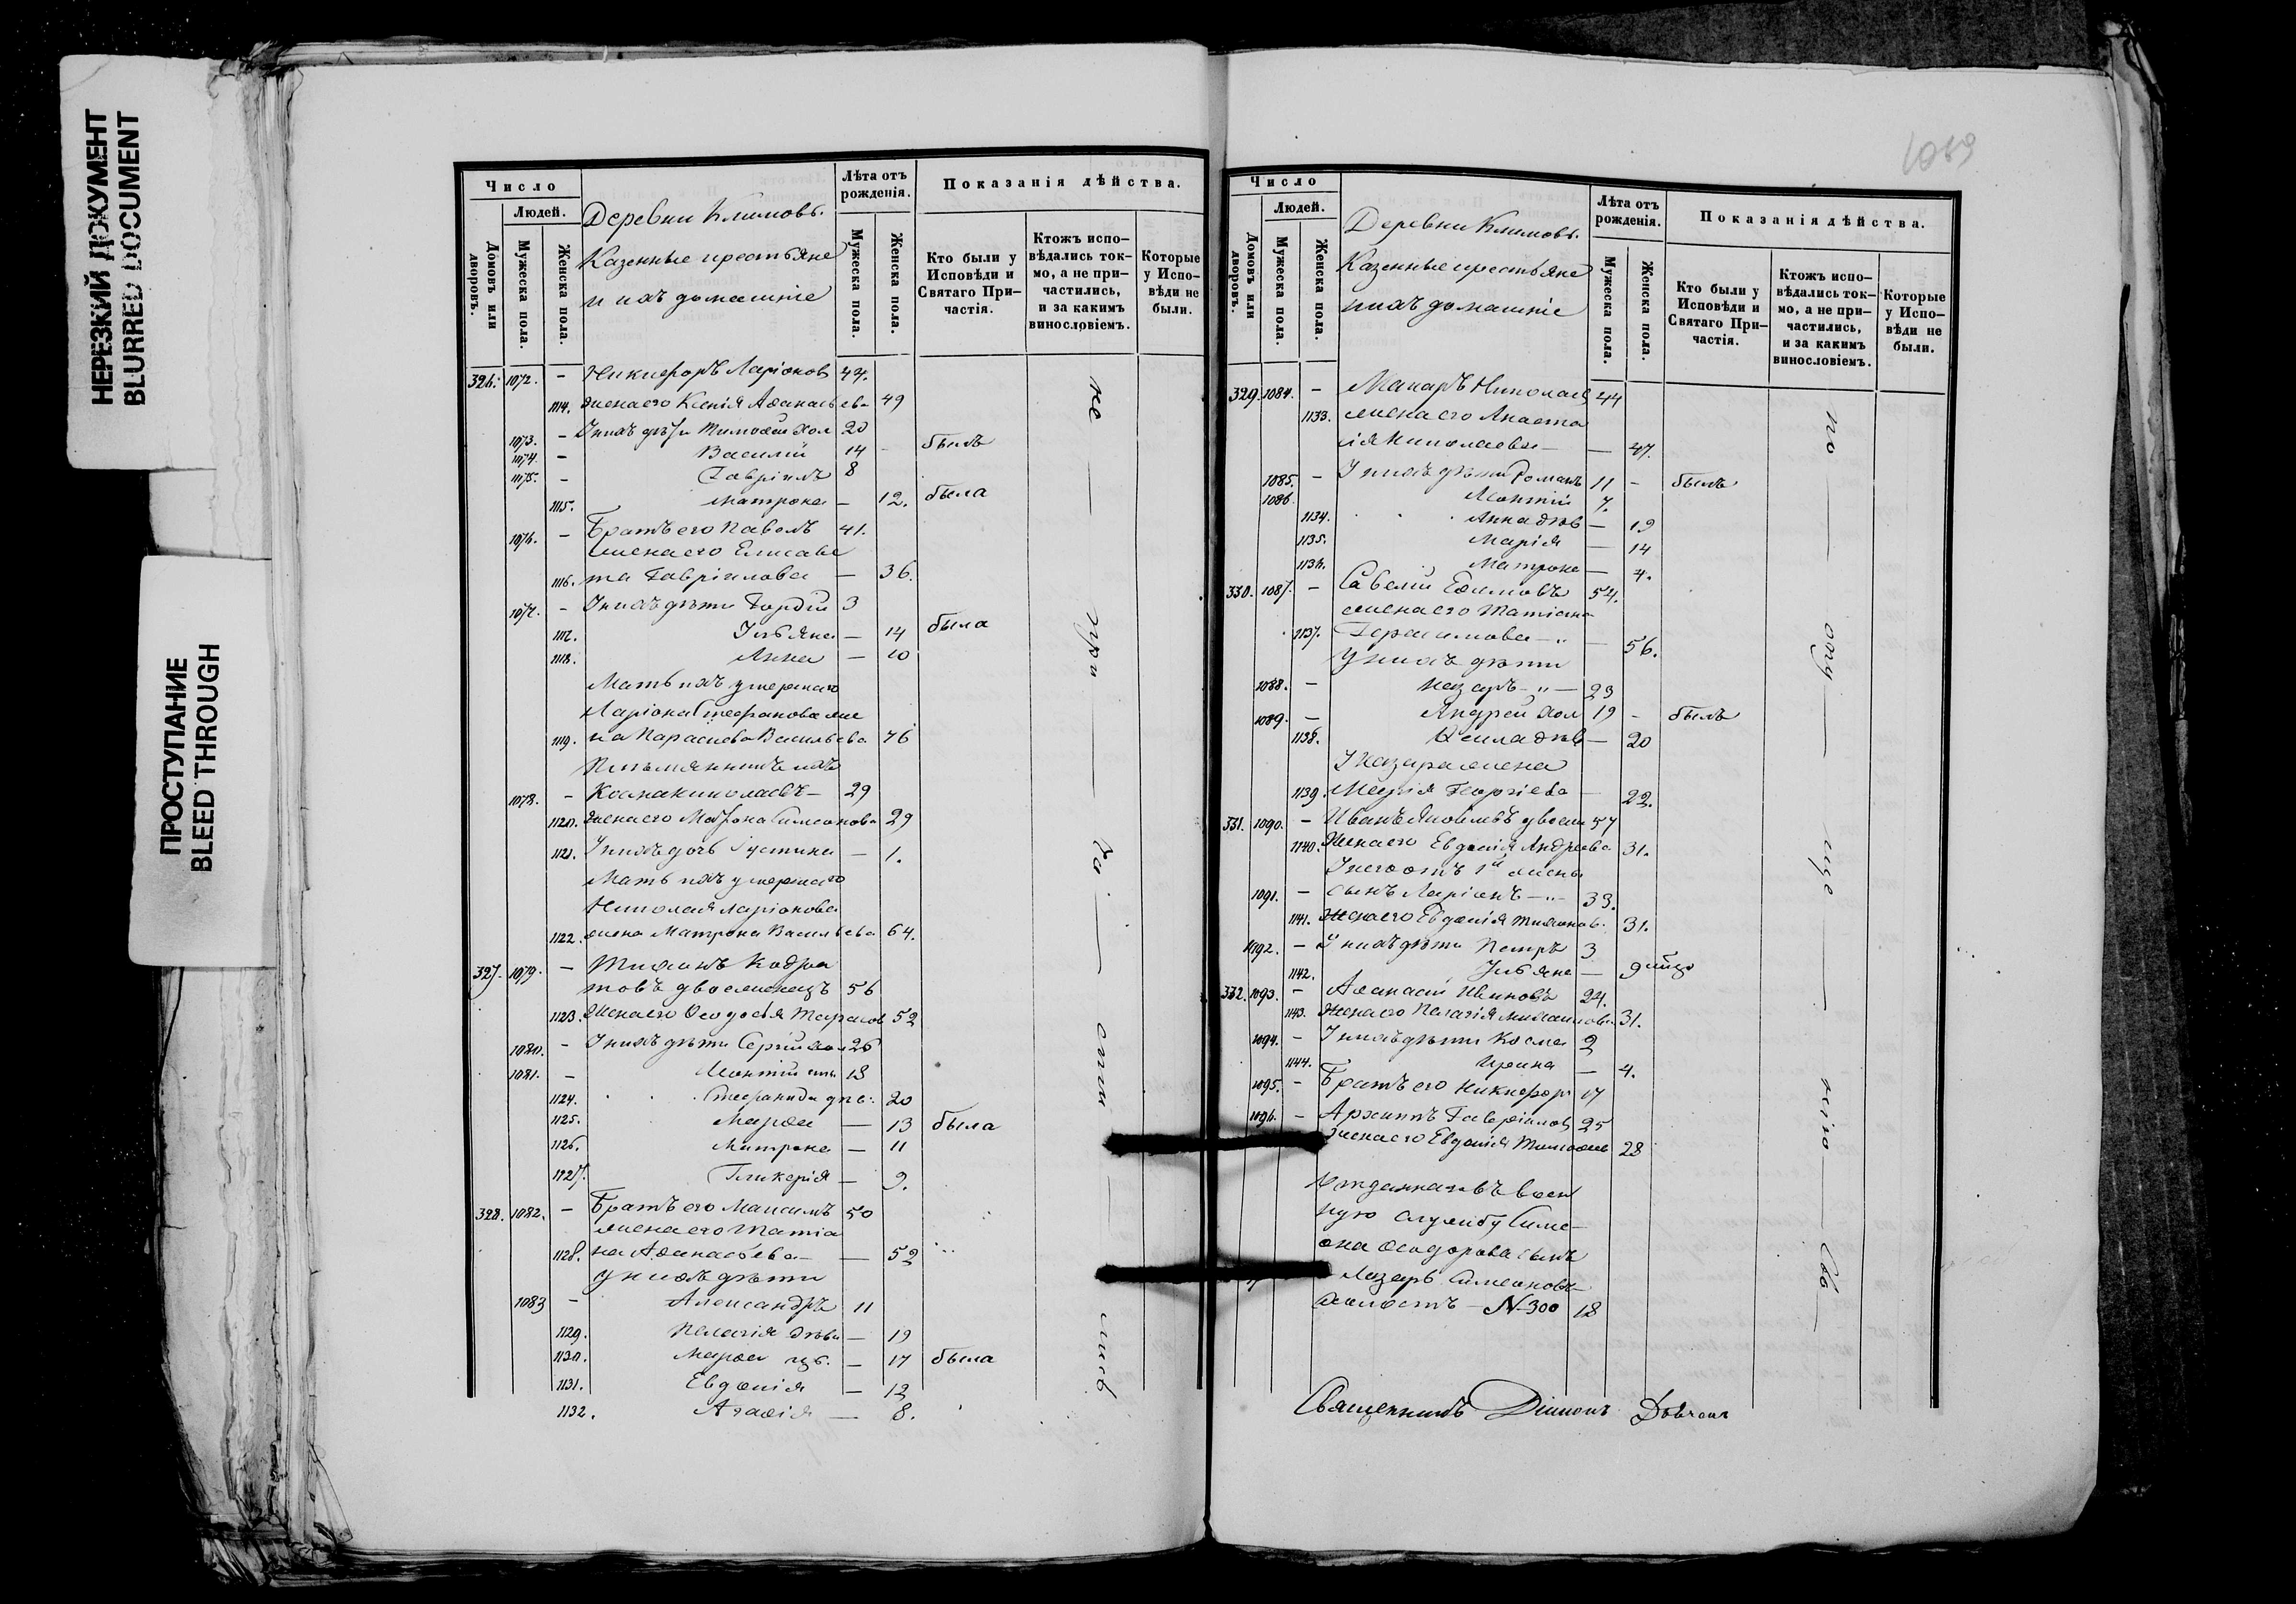 НЕРЕЗКИЙ ДОКУМЕНТ
BLURRED DOCUMENT
ПРОСТУПАНИЕ
BLEED THROUGH
Число
Людей.
Домовъ или дворовъ.
Мужеска пола.
Женска пола.
Деревни Климовъ.
Казенные крестьяне
и ихъ домашніе
Лѣта отъ рожденія.
Мужеска пола.
Женска пола.
Показанія дѣйства.
Кто были у Исповѣди и Святаго Причастія.
Ктожъ исповѣдались токмо, а не причастились, и за какимъ винословіемъ.
Которые у Исповѣди не были.
326. 1072. – Никифоръ Ларіоновъ 47.
1114. жена его Ксенія Аѳанасьева 49
1073. – У нихъ дѣти Тимоѳей хол 20
1074 – Василій 14 – былъ
1075. – Гавріилъ 8
1115. Матрона – 12. была
1076. – Братъ его Павелъ 41.
жена его Елисаве
1116. та Гавріилова – 36.
1077. – У нихъ дѣти Гордій 3
1117. Ульяна – 14 была
1118. Анна – 10
Мать ихъ умершаго
Ларіона Стефанова же
1119. на Параскева Васильева 76
Племянникъ ихъ
1078. – Косма Николаевъ – 29
1120. жена его Матрона Симеонова 29
1121. У нихъ дочь Іустина – 1.
Мать ихъ умершаго
Николая Ларіонова
1122. жена Матрона Васильева 64.
327. 1079. – Тихонъ Кодра
товъ двоеженецъ 56
1123. Жена его Ѳеодосья Тарасов 52
1080. – У нихъ дѣти Сергій хол 26
1081. – Леонтій 18
1124. Стефанида дѣв. 20
1125. Марѳа – 13 была
1126. Матрона – 11
1127. Гликерія – 9.
328. 1082. – Братъ его Максимъ 50
жена его Татіа
1128. на Аѳанасьева – 52
У нихъ дѣти
1083 – Александръ 11
1129. Пелагія дѣва – 19
1130. Марѳа – 17 была
1131. Евдокія – 12
1132. Агафія – 8.
не
при
ча
сти
лись
1069
Число
Людей.
Домовъ или дворовъ.
Мужеска пола.
Женска пола.
Деревни Климовъ.
Казенные крестьяне
и ихъ домашніе
Лѣта отъ рожденія.
Мужеска пола.
Женска пола.
Показанія дѣйства.
Кто были у Исповѣди и Святаго Причастія.
Ктожъ исповѣдались токмо, а не причастились, и за какимъ винословіемъ.
Которые у Исповѣди не были.
329. 1084. – Макаръ Николаев 44
1133. жена его Анаста
сія Николаева – 47.
1085. – У нихъ дѣти Романъ 11 – былъ
1086. Леонтій 7.
1134. Анна дѣв – 19
1135. Марія – 14
1136. Матрона – 4.
330. 1087. – Савелій Ефимовъ 54.
жена его Татіана
1137. Герасимова – 56.
У нихъ дѣти
1088. – Назаръ – 23
1089. – Андрей хол 19 – былъ
1138. дѣв – 20
У Назара жена
1139. Марія Георгіева – 22.
331. 1090. – Иванъ Яковлевъ двоеж 57
1140. Жена его Евдокія Андреева 31.
У него отъ 1й жены
1091. – сынъ Ларіонъ – 33.
1141. Жена его Евдокія Тихонов. 31.
1092. – У нихъ дѣти Петръ 3
1142. Ульяна – 9
332. 1093. – Аѳанасій Ивановъ 24.
1143. Жена его Пелагія Михаилова 31.
1094. – У нихъ дѣти Косма 2
1144. Ирина – 4.
1095. – Братъ его Никифоръ 17
1096. – Архипъ Гавріиловъ 25
жена его Евдокія Тимоѳеев 28
Отданнаго въ воен
ную службу Симе–
она Ѳеодорова сынъ
Лазарь Симеоновъ
холостъ – № 300 18
по
опу
ще
нію
Священникъ